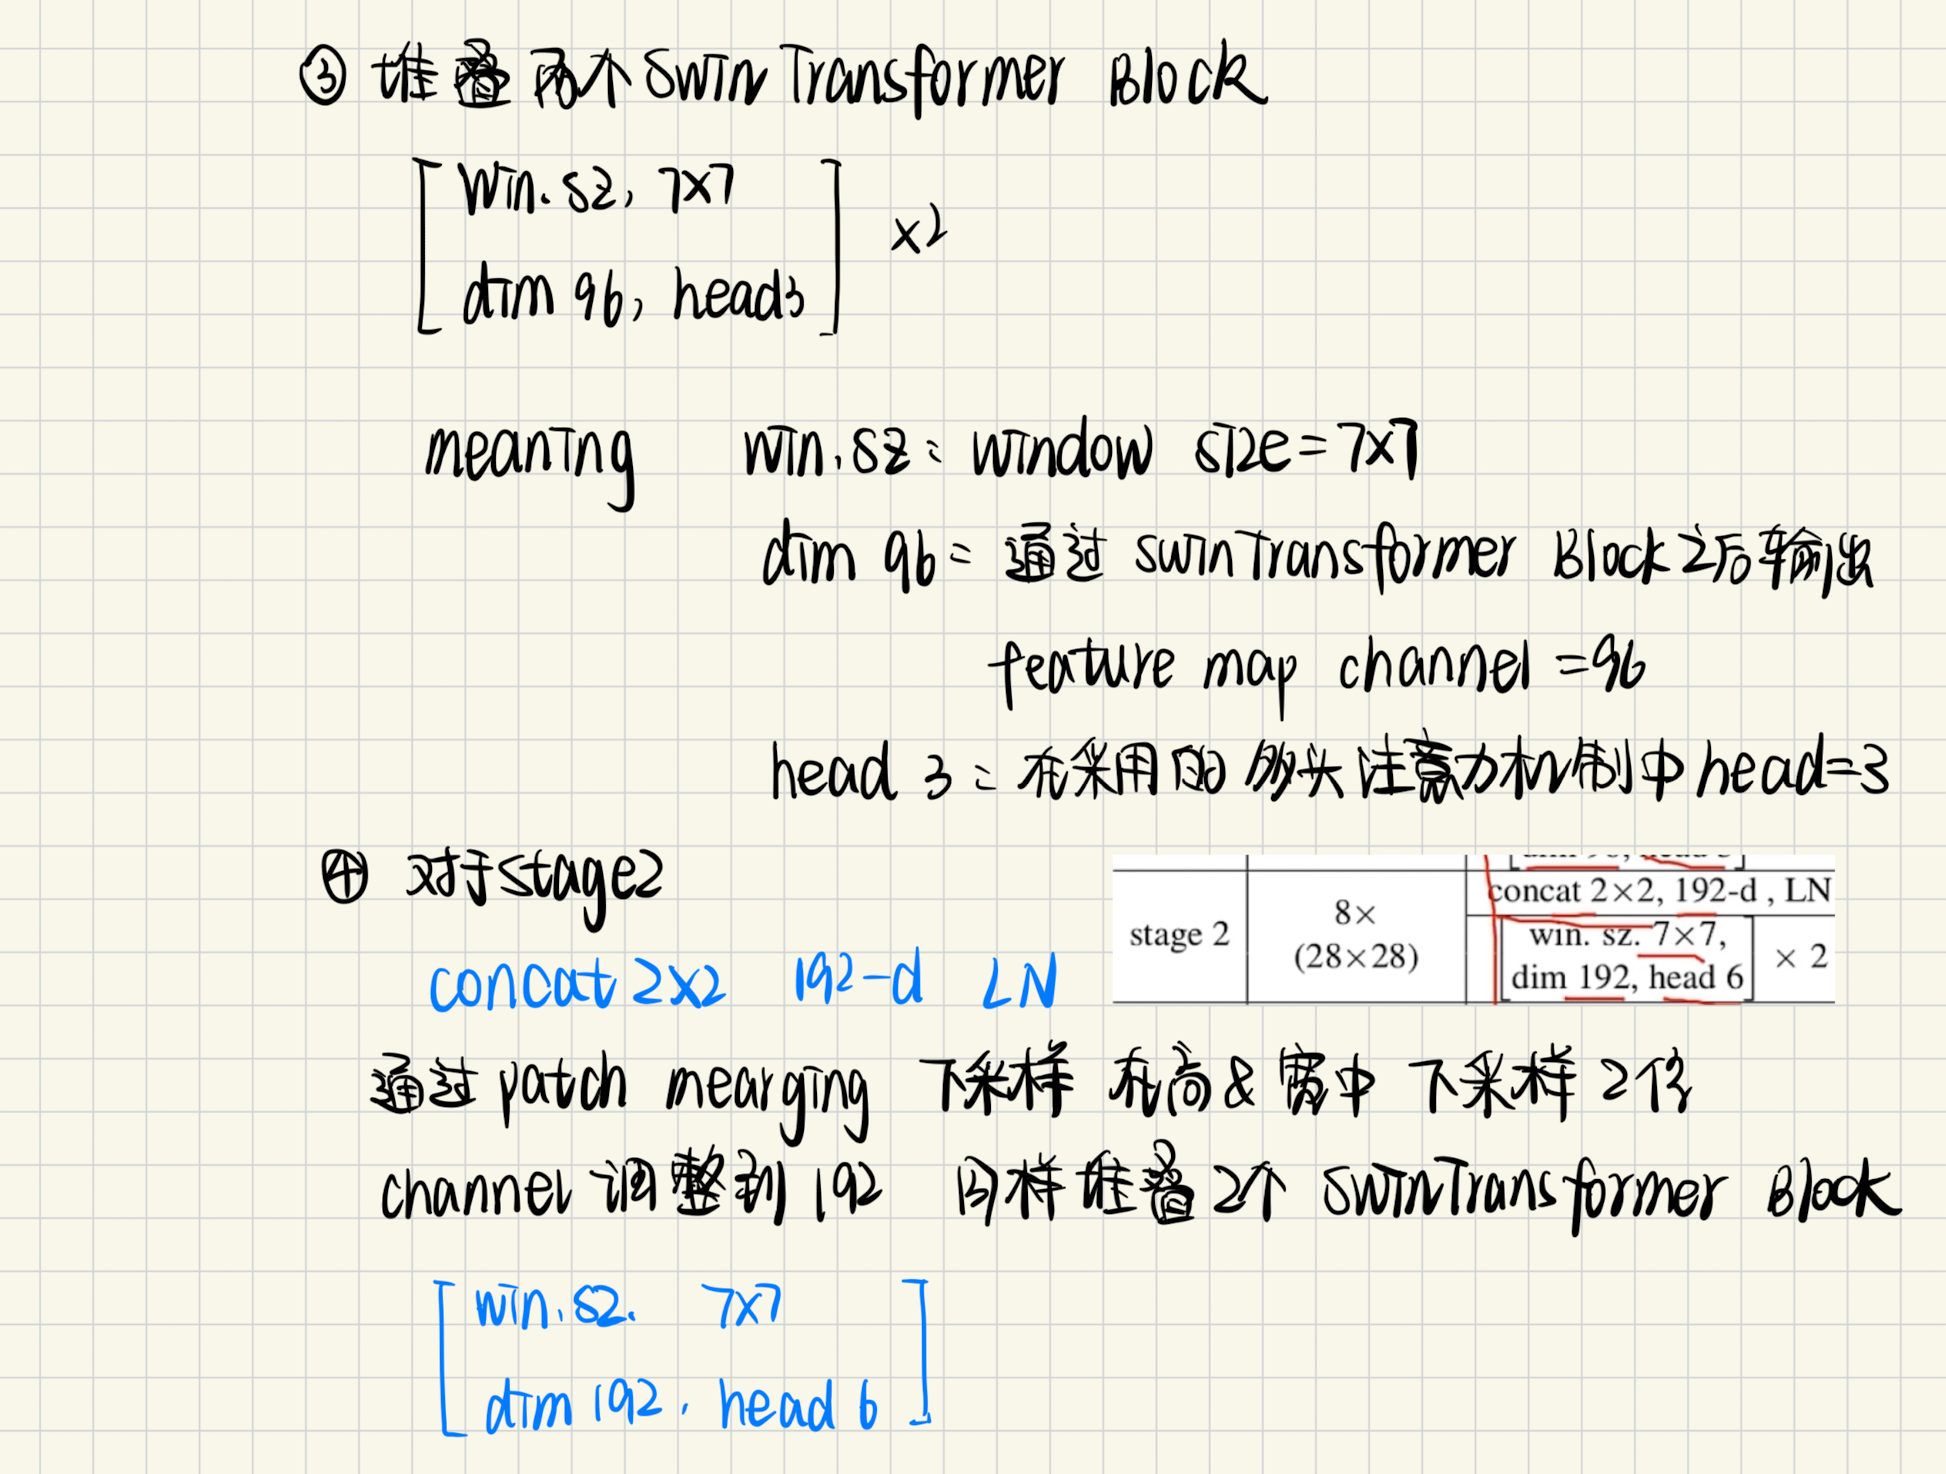 ③ 堆叠两个 Swin Transformer Block
win. sz, 7x7
dim 96, head3
x2
meaning win. sz : window size = 7x7
dim 96 = 通过 swin Transformer Block 之后输出
feature map channel = 96
head 3 : 在采用的 多头注意力机制中 head=3
④ 对于stage2
concat 2×2, 192-d , LN
stage 2
8×
(28×28)
win. sz. 7×7,
dim 192, head 6
× 2
concat 2x2 192-d LN
通过 patch mearging 下采样 在高 & 宽中 下采样 2倍
channel 调整到 192 同样堆叠 2个 Swin Transformer Block
win. sz. 7x7
dim 192, head 6